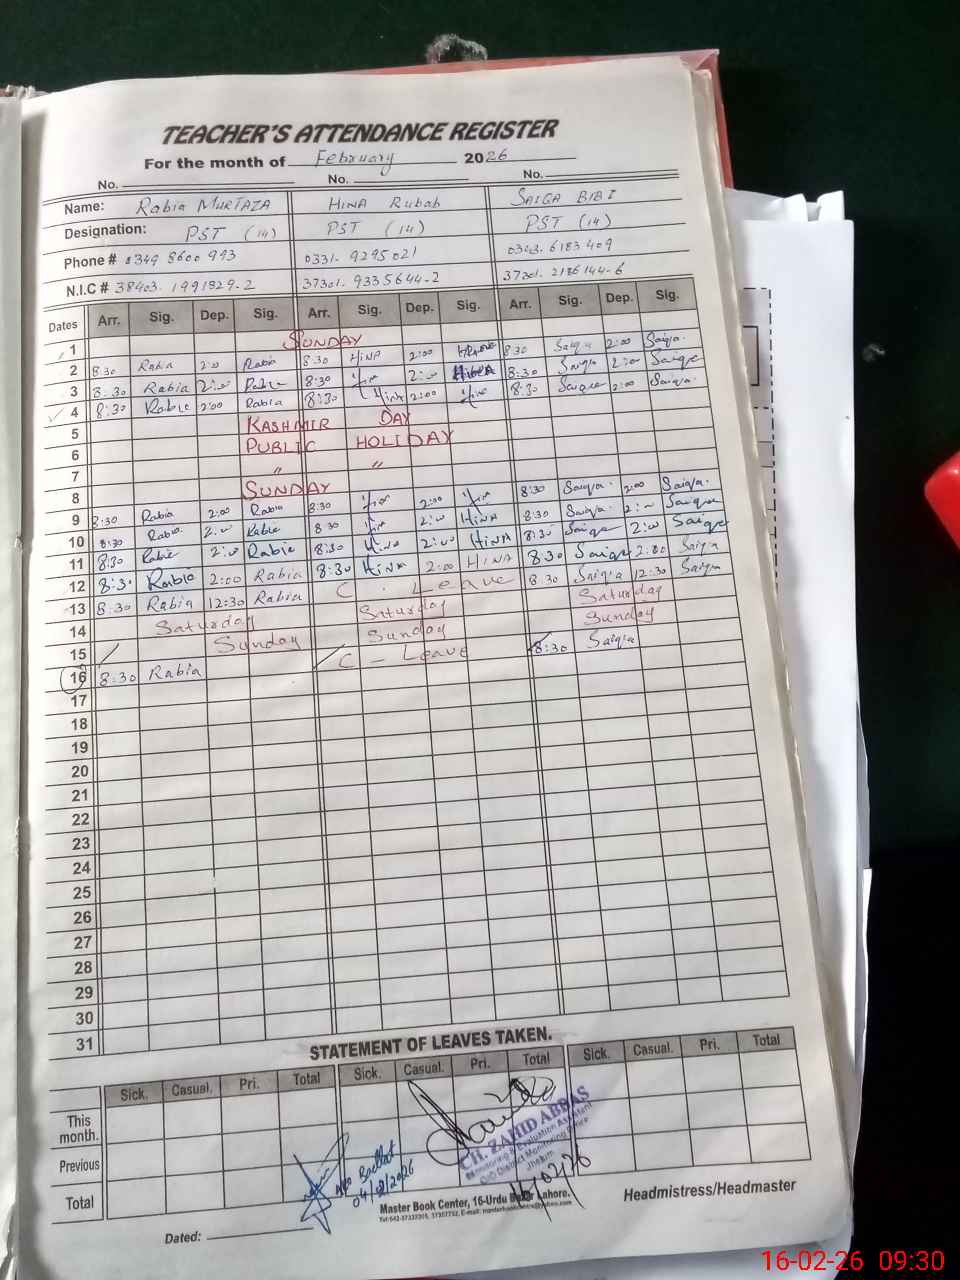 TEACHER'S ATTENDANCE REGISTER
For the month of February 2026
No. No. No.
Name: Rabia MURTAZA HINA Rubab SAIQA BIBI
Designation: PST (14) PST (14) PST (14)
Phone # 0349 8600 993 0331. 9295021 0343. 6183409
N.I.C # 38403. 1991829-2 37301. 9335644-2 37301. 2186144-6
Dates Arr. Sig. Dep. Sig. Arr. Sig. Dep. Sig. Arr. Sig. Dep. Sig.
1 SUNDAY
2 8:30 Rabia 2:00 Rabia 8:30 HINA 2:00 8:30 Saiqa 2:00 Saiqa
3 8:30 Rabia 2:00 Rabia 8:30 2:00 8:30 Saiqa 2:00 Saiqa
4 8:30 Rabia 2:00 Rabia 8:30 Hina 2:00 8:30 Saiqa 2:00 Saiqa
5 KASHMIR DAY
6 PUBLIC HOLIDAY
7 " "
8 SUNDAY
9 8:30 Rabia 2:00 Rabia 8:30 2:00 8:30 Saiqa 2:00 Saiqa
10 8:30 Rabia 2:00 Rabia 8:30 2:00 HINA 8:30 Saiqa 2:00 Saiqa
11 8:30 Rabia 2:00 Rabia 8:30 HINA 2:00 HINA 8:30 Saiqa 2:00 Saiqa
12 8:30 Rabia 2:00 Rabia 8:30 HINA 2:00 HINA 8:30 Saiqa 2:00 Saiqa
13 8:30 Rabia 12:30 Rabia C - Leave 8:30 Saiqa 12:30 Saiqa
14 Saturday Saturday Saturday
15 Sunday Sunday Sunday
16 8:30 Rabia C - Leave 8:30 Saiqa
17
18
19
20
21
22
23
24
25
26
27
28
29
30
31
STATEMENT OF LEAVES TAKEN.
Sick. Casual. Pri. Total Sick. Casual. Pri. Total Sick. Casual. Pri. Total
This month.
Previous
Total
CH. ZAHID ABBAS
Monitoring & Evaluation Assistant
O/O District Monitoring Office
Jhelum
16/02/26
04/02/2026
Master Book Center, 16-Urdu Bazar Lahore.
Headmistress/Headmaster
Dated:
16-02-26 09:30